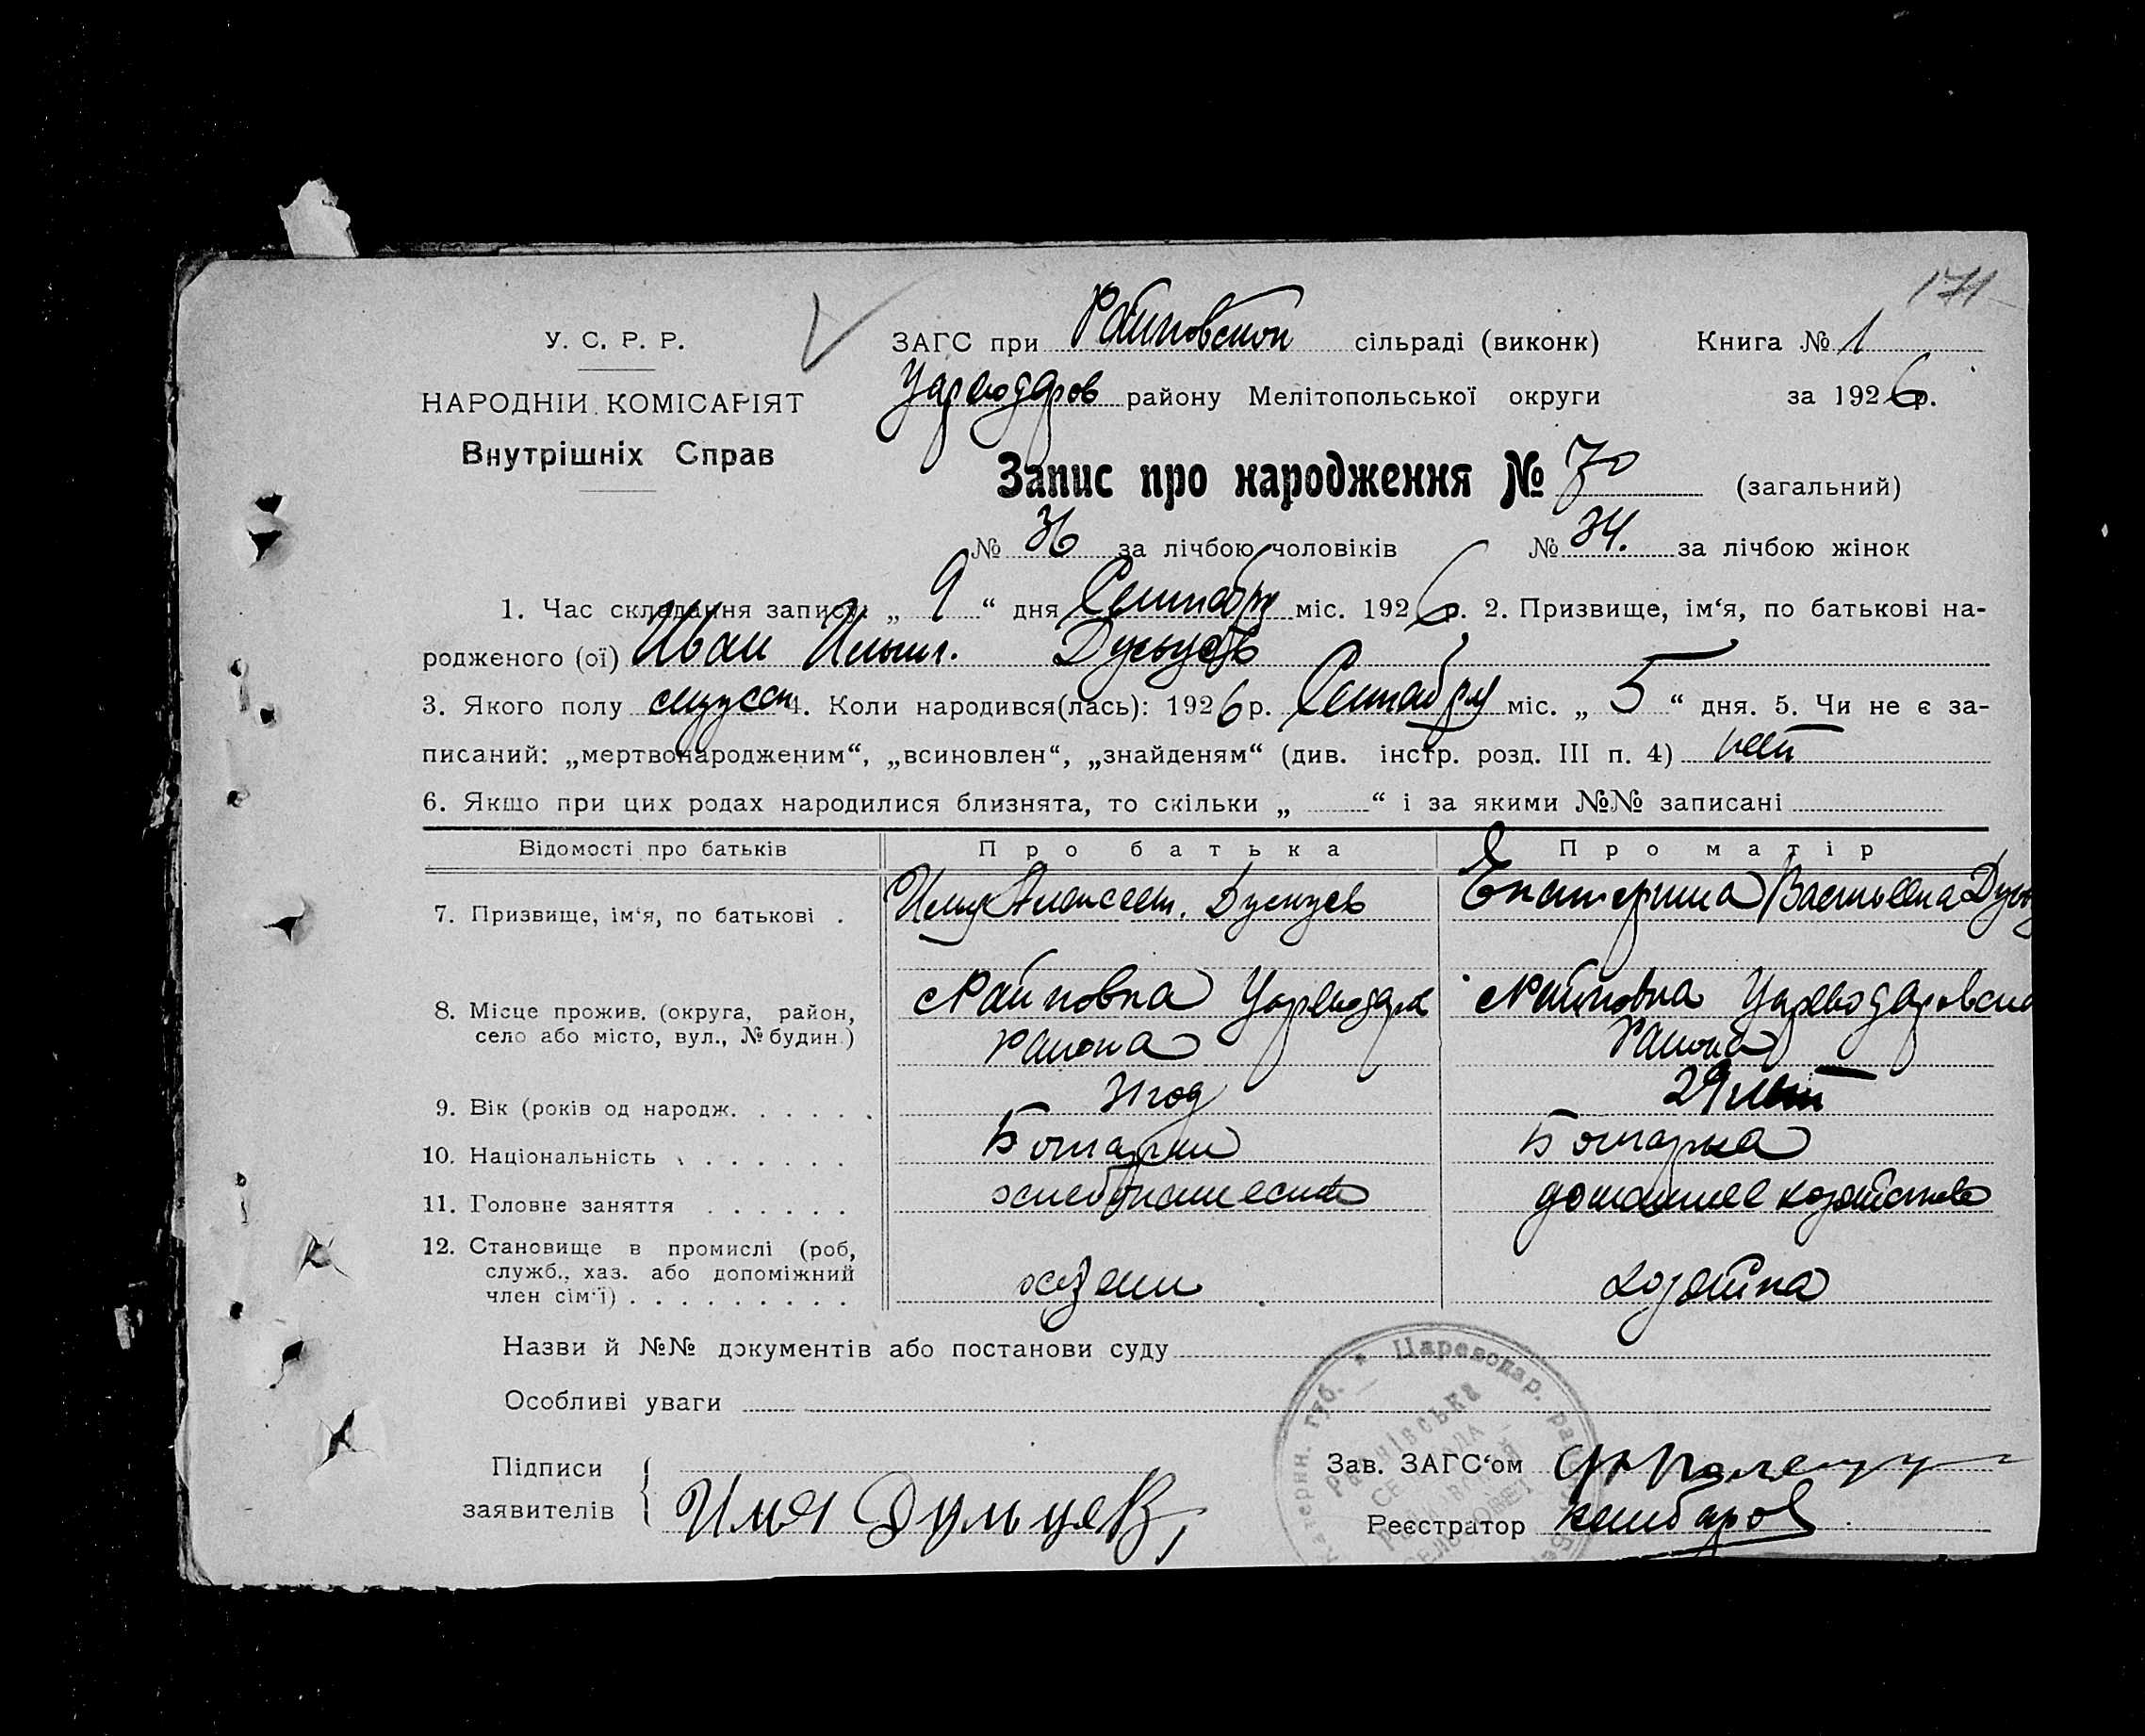 171
У. С. Р. Р.
ЗАГС при Райновской сільраді (виконк) Книга № 1
НАРОДНІЙ КОМІСАРІЯТ
Цареводаров району Мелітопольської округи за 1926 р.
Внутрішніх Справ
Запис про народження № 70 (загальний)
№ 36 за лічбою чоловіків № 34. за лічбою жінок
1. Час складання запису: „ 9 “ дня Сентября міс. 1926 р. 2. Призвище, ім‘я, по батькові на-
родженого (ої) Иван Ильич. Дульцев
3. Якого полу мужск 4. Коли народився(лась): 1926 р. Сентября міс. „ 5 “ дня. 5. Чи не є за-
писаний: „мертвонародженим“, „всиновлен“, „знайденям“ (див. інстр. розд. III п. 4) нет
6. Якщо при цих родах народилися близнята, то скільки „ “ і за якими №№ записані
Відомості про батьків Про батька Про матір
7. Призвище, ім‘я, по батькові . Илья Алексеев. Дульцев Екатерина Васильевна
8. Місце прожив. (округа, район, село або місто, вул., № будин.) Райновка Цареводар района Райновка Цареводаровско района
9. Вік (років од народж. . . . . . 31 год 29 лет
10. Національність . . . . . . Болгарин Болгарка
11. Головне заняття . . . . . . хлебопашество домашнее хозяйство
12. Становище в промислі (роб, служб., хаз. або допоміжний член сім‘ї) . . . . . . . . . хозяин хозяйка
Назви й №№ документів або постанови суду
Особливі уваги
Підписи
заявителів
Илья Дульцев
Зав. ЗАГС‘ом
Реєстратор
Катерин. губ. * Цареводар. район
Райнівська
СЕЛЬРАДА